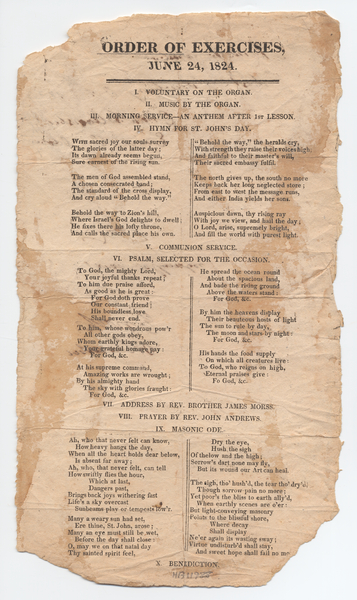 ORDER OF EXERCISES,
JUNE 24, 1824.
I. VOLUNTARY ON THE ORGAN.
II. MUSIC BY THE ORGAN.
III. MORNING SERVICE—AN ANTHEM AFTER 1ST LESSON.
IV. HYMN FOR ST. JOHN'S DAY.
WITH sacred joy our souls survey
The glories of the latter day;
Its dawn already seems begun,
Sure earnest of the rising sun.
The men of God assembled stand,
A chosen consecrated band;
The standard of the cross display,
And cry aloud "Behold the way."
Behold the way to Zion's hill,
Where Israel's God delights to dwell;
He fixes there his lofty throne,
And calls the sacred place his own.
"Behold the way," the heralds cry,
With strength they raise their voices high;
And faithful to their master's will,
Their sacred embassy fulfil.
The north gives up, the south no more
Keeps back her long neglected store;
From east to west the message runs,
And either India yields her sons.
Auspicious dawn, thy rising ray
With joy we view, and hail the day;
O Lord, arise, supremely bright,
And fill the world with purest light.
V. COMMUNION SERVICE.
VI. PSALM, SELECTED FOR THE OCCASION.
To God, the mighty Lord,
Your joyful thanks repeat;
To him due praise afford,
As good as he is great:
For God doth prove
Our constant friend;
His boundless love
Shall never end.
To him, whose wondrous pow'r
All other gods obey,
Whom earthly kings adore,
Your grateful homage pay:
For God, &c.
At his supreme command,
Amazing works are wrought;
By his almighty hand
The sky with glories fraught
For God, &c.
He spread the ocean round
About the spacious land,
And bade the rising ground
Above the waters stand:
For God, &c.
By him the heavens display
Their beauteous hosts of light
The sun to rule by day,
The moon and stars by night:
For God, &c.
His hands the food supply
On which all creatures live:
To God, who reigns on high,
Eternal praises give:
Fo God, &c.
VII. ADDRESS BY REV. BROTHER JAMES MORSS.
VIII. PRAYER BY REV. JOHN ANDREWS.
IX. MASONIC ODE.
Ah, who that never felt can know,
How heavy hangs the day,
When all the heart holds dear below,
Is absent far away;
Ah, who, that never felt, can tell
How swiftly flies the hour,
Which at last,
Dangers past,
Brings back joys withering fast
Life's a sky overcast
Sunbeams play or tempests low'r.
Many a weary sun had set,
Ere thine, St. John, arose;
Many an eye must still be wet,
Before the day shall close:
O, may we on that natal day
Thy sainted spirit feel,
Dry the eye,
Hush the sigh
Of the low and the high;
Sorrow's dart none may fly,
But its wound our Art can heal.
The sigh, tho' hush'd, the tear tho' dry'd,
Though sorrow pain no more;
Yet poor's the bliss to earth ally'd,
When earthly scenes are o'er:
But light-conveying masonry
Points to the blissful shore,
Where decay
Shall display
Ne'er again its wasting sway;
Virtue undisturb'd shall stay,
And sweet hope shall fail no mo
X BENEDICTION.